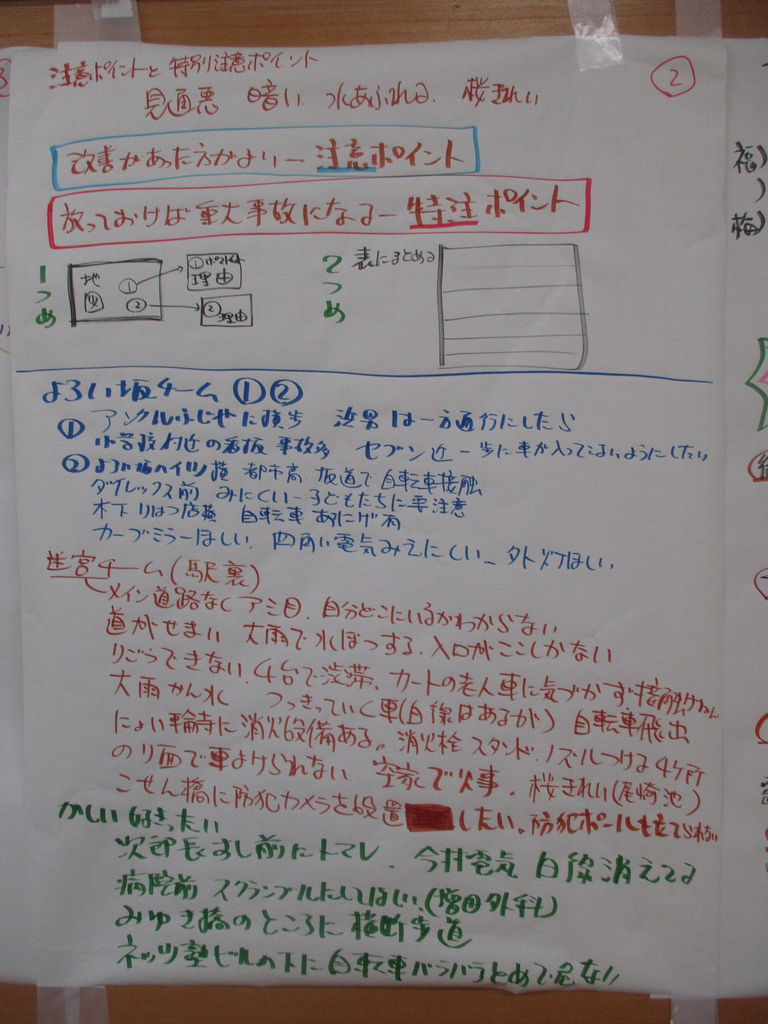 注意ポイントと特別注意ポイント
②
見通悪 暗い 水あふれる 桜きれい
改善があった方がよいー注意ポイント
放っておけば重大事故になるー特注ポイント
1つめ
地図
①
②
①ポイント
理由
②
理由
2つめ
表にまとめる
よろい坂チーム ①②
① アンクルふじやに横歩 は一方通行にしたら
小学校付近の看板 事故多 セブン近 歩に車が入ってこないようにしたい
② ハイツ横 都市高 坂道で自転車接触
ダイレックス前 みにくいー子どもたちに要注意
木下りはつ店横 自転車
カーブミラーほしい. 四角い電気みえにくい 外灯ほしい
迷宮チーム(駅裏)
メイン道路なく アミ目. 自分どこにいるかわからない
道がせまい 大雨で水ぼつする. 入口がここしかない
りごうできない. 4台で渋滞. カートの老人車に気づかず接触
大雨かん水 つっきっていく車(白線はあるが) 自転車飛出
に消火設備ある。消火栓 スタンド. ノズルつける4ケ所
のり面で車よけられない 空家で火事. 桜きれい(尾崎池)
こせん橋に防犯カメラを設置したい. 防犯ポールも立てられない
次郎長すし前にトマレ. 今井電気 白線消えてる
病院前 スクランブルにしてほしい.(増田外科)
みゆき橋のところに横断歩道
ネッツ塾ビルの下に自転車バラバラとめて危ない
福)
)
梅)